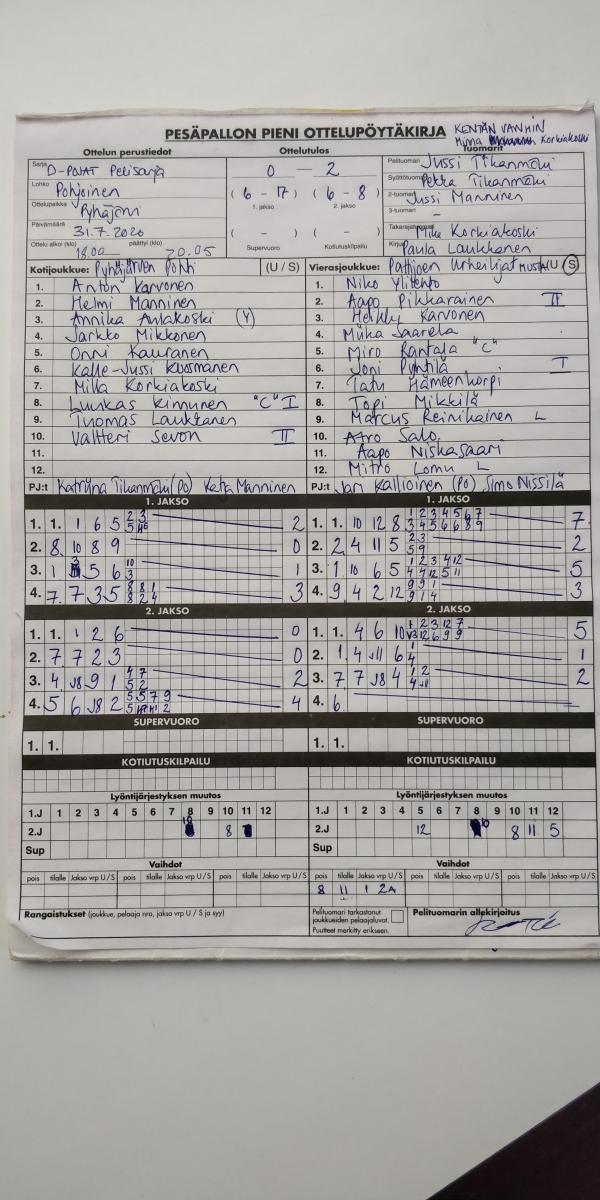 PESÄPALLON PIENI OTTELUPÖYTÄKIRJA
KENTÄN VANHIN
Minna Korkiakoski
Ottelun perustiedot
Ottelutulos
Tuomarit
Sarja D-POJAT Perussarja
0 — 2
Pelituomari Jussi Tikanmäki
Lohko Pohjoinen
(6 - 17) (6 - 8)
1. jakso 2. jakso
Syöttötuomari Pekka Tikanmäki
Ottelupaikka Pyhäjärvi
2-tuomari Jussi Manninen
3-tuomari -
Päivämäärä 31.7.2020
( - ) ( - )
Supervuoro Kotiutuskilpailu
Takarajatuomari Mika Korkiakoski
Ottelu alkoi (klo) 18.00 päättyi (klo) 20.05
Kirjuri Paula Laukkanen
Kotijoukkue: Pyhäjärven Pohti (U / S)
Vierasjoukkue: Pattijoen Urheilijat Musta (U / S)
1. Anton Karvonen
2. Helmi Manninen
3. Annika Antakoski (Y)
4. Jarkko Mikkonen
5. Onni Kauranen
6. Kalle-Jussi Kuosmanen
7. Milla Korkiakoski
8. Luukas Kinnunen "C" I
9. Tuomas Laukkanen
10. Valtteri Sevon II
11.
12.
PJ:t Katriina Tikanmäki (PO) Keta Manninen
1. Niko Ylitehto
2. Aapo Pikkarainen II
3. Heikky Karvonen
4. Miika Saarela
5. Miro Rantala "C"
6. Joni Pyhtilä I
7. Tatu Hämeenkorpi
8. Topi Mikkilä
9. Marcus Reinikainen L
10. Atro Salo
11. Aapo Niskasaari
12. Mitro Lomu L
PJ:t Jari Kallioinen (PO) Simo Nissilä
1. JAKSO 1. JAKSO
1. 1. 1 6 5 2 3 2
2. 8 10 8 9 0
3. 1 5 6 10 3 1
4. 7 7 3 5 8 8 1 8 2 4 3
1. 1. 10 12 8 1 2 3 4 5 6 7 3 4 5 6 6 8 9 7
2. 2 4 11 5 2 3 5 9 2
3. 1 10 6 5 1 2 3 4 12 4 4 12 5 11 5
4. 9 4 2 12 9 9 1 9 1 4 3
2. JAKSO 2. JAKSO
1. 1. 1 2 6 0
2. 7 7 2 3 0
3. 4 J8 9 1 4 7 5 2 2
4. 5 6 J8 2 5 5 7 9 4
1. 1. 4 6 10 1 2 3 12 7 5
2. 1 4 J11 6 1 4 1
3. 7 7 J8 4 1 2 4 J11 2
4. 6
SUPERVUORO SUPERVUORO
1. 1. 1. 1.
KOTIUTUSKILPAILU KOTIUTUSKILPAILU
Lyöntijärjestyksen muutos Lyöntijärjestyksen muutos
1.J 1 2 3 4 5 6 7 8 9 10 11 12
2.J 10 8
Sup
1.J 1 2 3 4 5 6 7 8 9 10 11 12
2.J 12 10 8 11 5
Sup
Vaihdot Vaihdot
pois tilalle Jakso vrp U / S pois tilalle Jakso vrp U / S pois tilalle Jakso vrp U / S
pois tilalle Jakso vrp U / S pois tilalle Jakso vrp U / S pois tilalle Jakso vrp U / S
8 11 1 2A
Rangaistukset (joukkue, pelaaja nro, jakso vrp U / S ja syy)
Pelituomari tarkastanut joukkueiden pelaajaluvat.
Puutteet merkitty erikseen.
Pelituomarin allekirjoitus